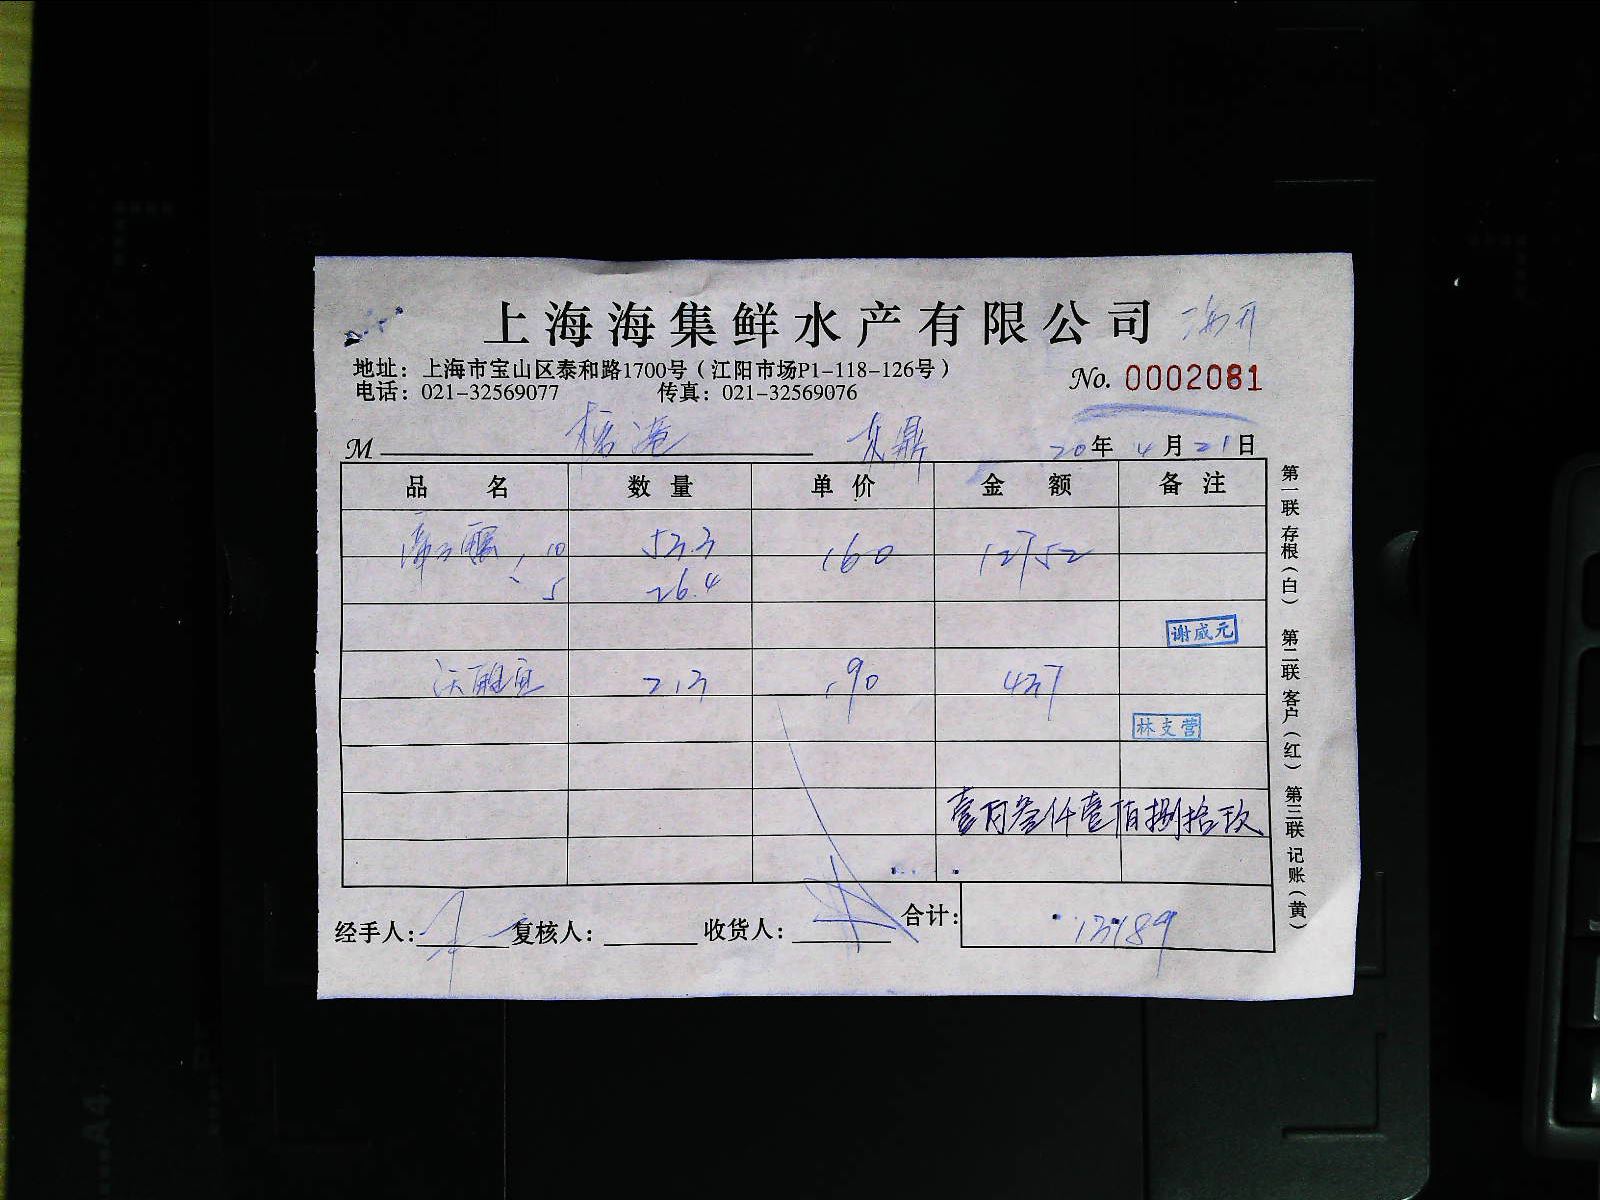 上海海集鲜水产有限公司
地址：上海市宝山区泰和路1700号（江阳市场P1-118-126号）
电话：021-32569077 传真：021-32569076
No. 0002081
M
20年 4月21日
品名 数量 单价 金额 备注
10 53.3 160 12752
5 26.4
谢咸元
2.3 190 437
林支营
壹万叁仟壹佰捌拾玖
经手人： 复核人： 收货人： 合计： 13189
第一联 存根（白） 第二联 客户（红） 第三联 记账（黄）